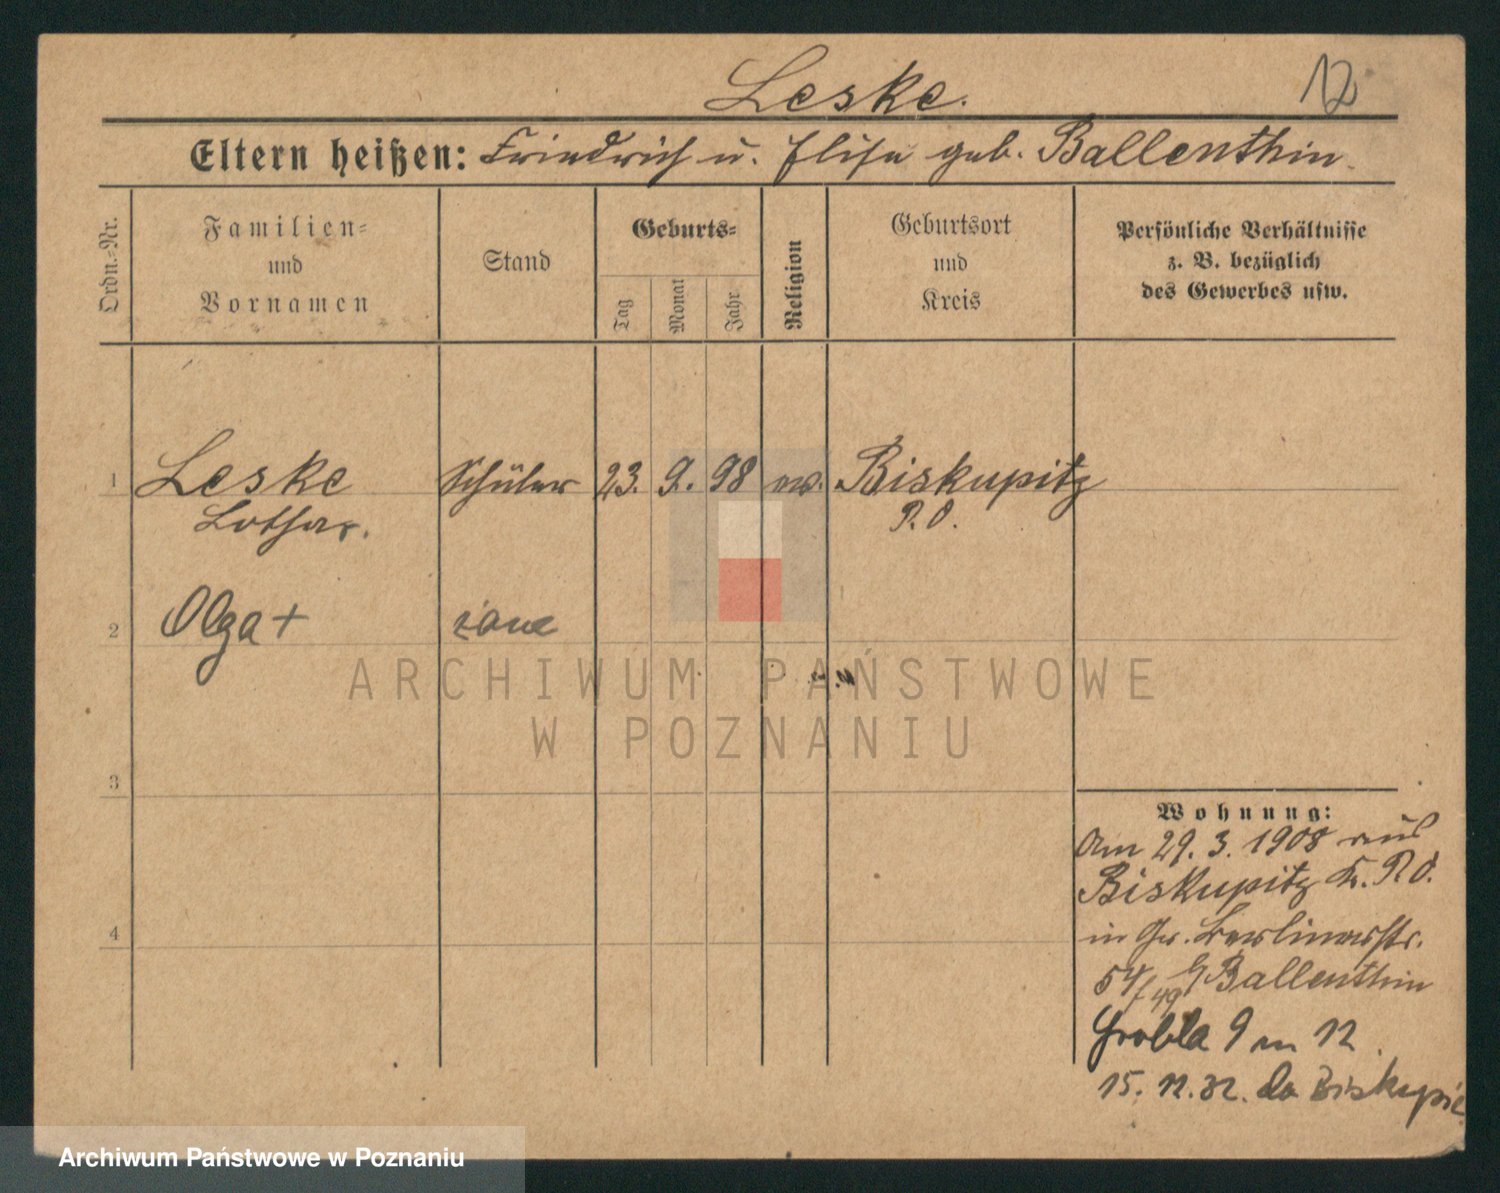 Leske. 12
Eltern heißen: Friedrich u. Elise geb. Ballenthin.
Ordn.-Nr.
Familien-
und
Vornamen
Stand
Geburts-
Tag
Monat
Jahr
Religion
Geburtsort
und
Kreis
Persönliche Verhältnisse
z. B. bezüglich
des Gewerbes usw.
1 Leske Schüler 23. 9. 98 ev. Biskupitz
Lothar. P. O.
2 Olga +
ARCHIWUM PAŃSTWOWE
W POZNANIU
3
4
Wohnung:
Am 29. 3. 1908 aus
Biskupitz Kr. P. O.
in Gr. Berlinerstr.
54/49 b/ Ballenthin
Grobla 9 m 12
15. 12. 32. do Biskupic
Archiwum Państwowe w Poznaniu